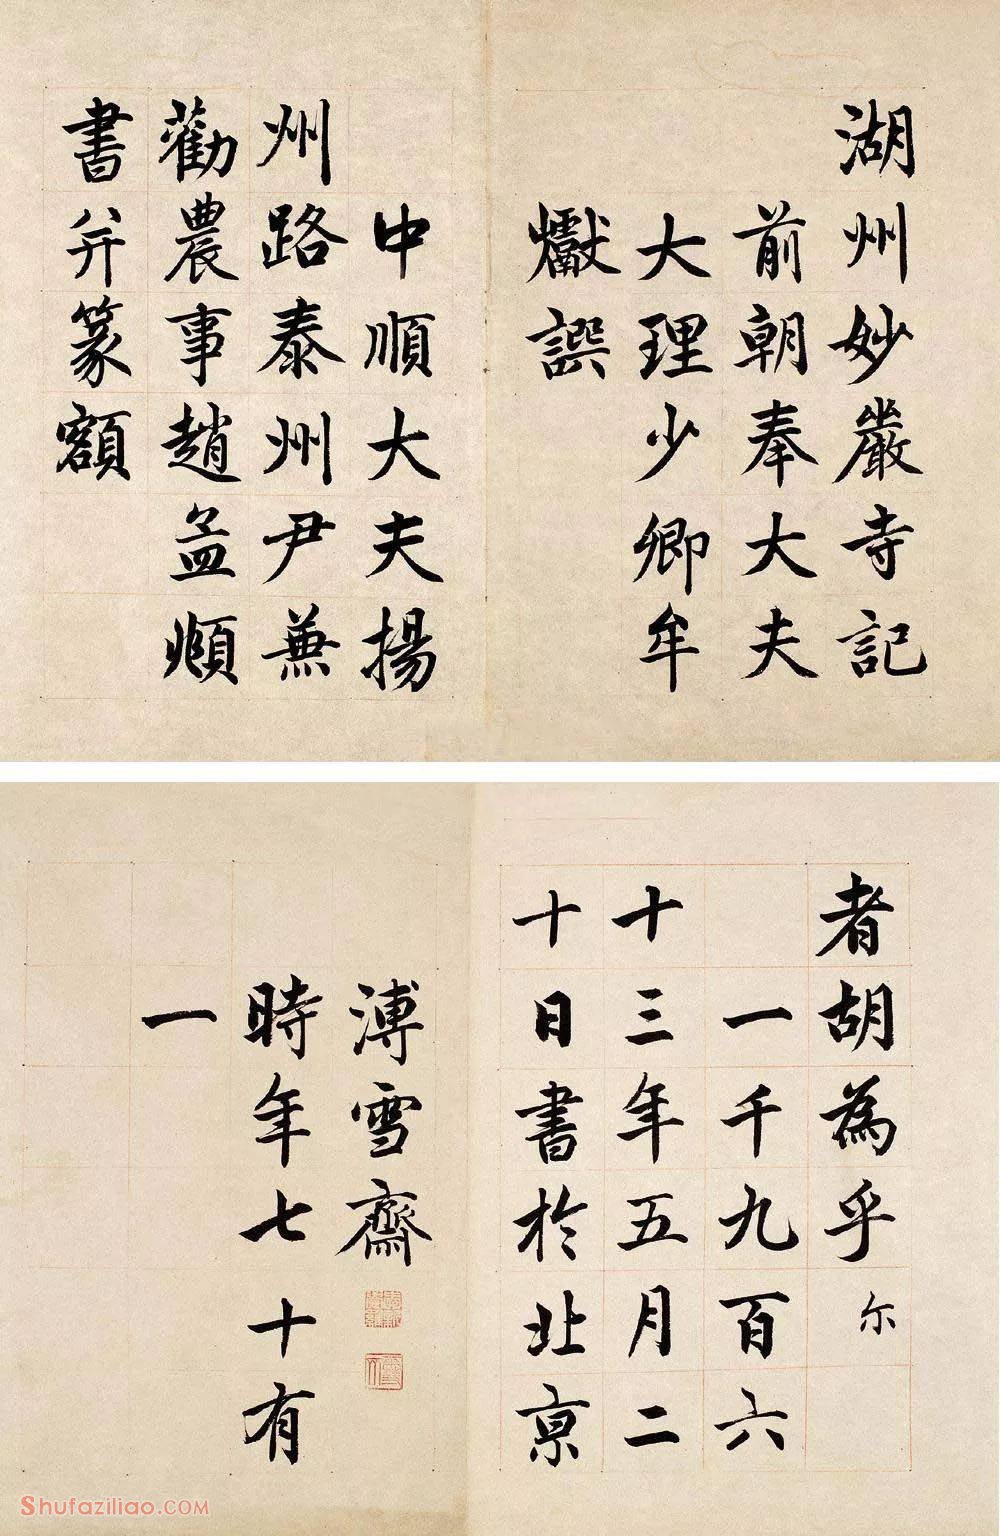 湖州妙嚴寺記
前朝奉大夫
大理少卿牟
巘譔
中順大夫揚
州路泰州尹兼
勸農事趙孟頫
書并篆額
者胡為乎尔
一千九百六
十三年五月二
十日書於北京
溥雪齋
時年七十有
一
Shufaziliao.COM